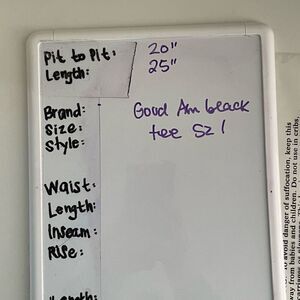 Pit to Pit: 20"
Length: 25"
Brand: Good Am black
Size: tee Sz 1
Style:
Waist:
Length:
Inseam:
Rise:
Length:
to avoid danger of suffocation, keep this
ay from babies and children. Do not use in cribs,